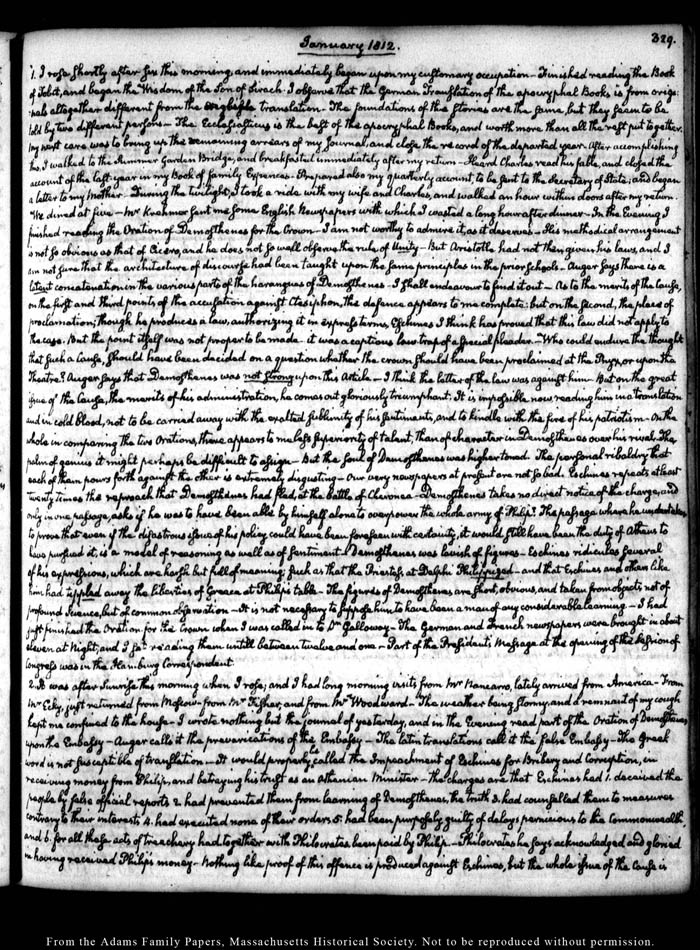 January 1812.
329.
1. I rose shortly after six this morning, and immediately began upon my customary occupation — Finished reading the Book
of Tobit, and began the Wisdom of the Son of Sirach. I observe that the German Translation of the apocryphal Books, is from origi-
nals altogether different from the English translation. The foundations of the Stories are the same, but they seem to be
told by two different persons — The Ecclesiasticus is the best of the apocryphal Books, and worth more than all the rest put together.
My next care was to bring up the remaining arrears of my Journal, and close the record of the departed year. After accomplishing
this, I walked to the Summer Garden Bridge, and breakfasted immediately after my return — Heard Charles read his fable, and closed the
account of the last year in my Book of family Expences — Prepared also my quarterly account, to be sent to the Secretary of State; and began
a letter to my Mother. During the twilight, I took a ride with my wife and Charles, and walked an hour within doors after my return.
We dined at five — Mr Krehmer sent me some English Newspapers with which I wasted a long hour after dinner — In the Evening I
finished reading the Oration of Demosthenes for the Crown — I am not worthy to admire it, as it deserves — His methodical arrangement
is not so obvious as that of Cicero, and he does not so well observe the rule of Unity — But Aristotle had not then given his laws, and I
am not sure that the architecture of discourse had been taught upon the same principles in the prior schools — Auger says there is a
latent concatenation in the various parts of the harangues of Demosthenes — I shall endeavour to find it out — As to the merits of the Cause,
on the first and third points of the accusation against Ctesiphon, the defence appears to me complete: but on the second, the place of
proclamation; though he produces a law, authorizing it in express terms, Eschines I think has proved that this law did not apply to
the case. But the point itself was not proper to be made — it was a captious law trap of a special pleader — Who could endure the thought
that such a Cause, should have been decided on a question whether the crown should have been proclaimed at the Pnyx, or upon the
Theatre? Auger says that Demosthenes was not strong upon this Article — I think the letter of the law was against him — But on the great
issue of the Cause, the merits of his administration, he comes out gloriously triumphant. It is impossible now reading him in a translation
and in cold blood, not to be carried away with the exalted sublimity of his sentiments, and to kindle with the fire of his patriotism — On the
whole in comparing the two Orations, there appears to me less superiority of talent, than of character in Demosthenes over his rival. The
palm of genius it might perhaps be difficult to assign — But the soul of Demosthenes was higher toned. The personal ribaldry that
each of them pours forth against the other is extremely disgusting — Our very newspapers at present are not so bad. Eschines repeats at least
twenty times the reproach that Demosthenes had fled, at the battle of Cheronea — Demosthenes takes no direct notice of the charge, and
only in one passage, asks if he was to have been able by himself alone to overpower the whole army of Philip? The passage where he undertakes
to prove that even if the disastrous issue of his policy could have been foreseen with certainty, it would still have been the duty of Athens to
have pursued it, is a model of reasoning as well as of sentiment — Demosthenes was lavish of figures — Eschines ridicules several
of his expressions, which are harsh but full of meaning; such as that the Priestess at Delphi Philippized — and that Eschines and others like
him had tippled away the liberties of Greece at Philip's table — The figures of Demosthenes are short, obvious, and taken from objects not of
profound science, but of common observation — It is not necessary to suppose him to have been a man of any considerable learning — I had
just finished the Oration for the Crown when I was called in to Dr Galloway — The German and French newspapers were brought in about
eleven at Night, and I sat reading them untill between twelve and one — Part of the President's Message at the opening of the Session of
Congress was in the Hamburg Correspondent.
2. It was after Sunrise this morning when I rose; and I had long morning visits from Mr Navarro, lately arrived from America — From
Mr Eddy, just returned from Moscow — from Mr Fisher, and from Mr Woodward — The weather being stormy, and a remnant of my cough
kept me confined to the house — I wrote nothing but the journal of yesterday, and in the Evening read part of the Oration of Demosthenes
upon the Embassy — Auger calls it the prevarications of the Embassy — The latin translations call it the false Embassy — The Greek
word is not susceptible of translation — It would properly be called the Impeachment of Eschines for Bribery and Corruption, in
receiving money from Philip, and betraying his trust as an Athenian Minister — The charges are that Eschines had 1. deceived the
people by false official reports 2. had prevented them from learning of Demosthenes, the truth 3. had counselled them to measures
contrary to their interests 4. had executed none of their orders 5. had been purposely guilty of delays pernicious to the Commonwealth.
and 6. for all these acts of treachery had together with Philocrates been paid by Philip — Philocrates he says acknowledged and gloried
in having received Philip's money — Nothing like proof of this offence is produced against Eschines, but the whole issue of the Cause is
From the Adams Family Papers, Massachusetts Historical Society. Not to be reproduced without permission.